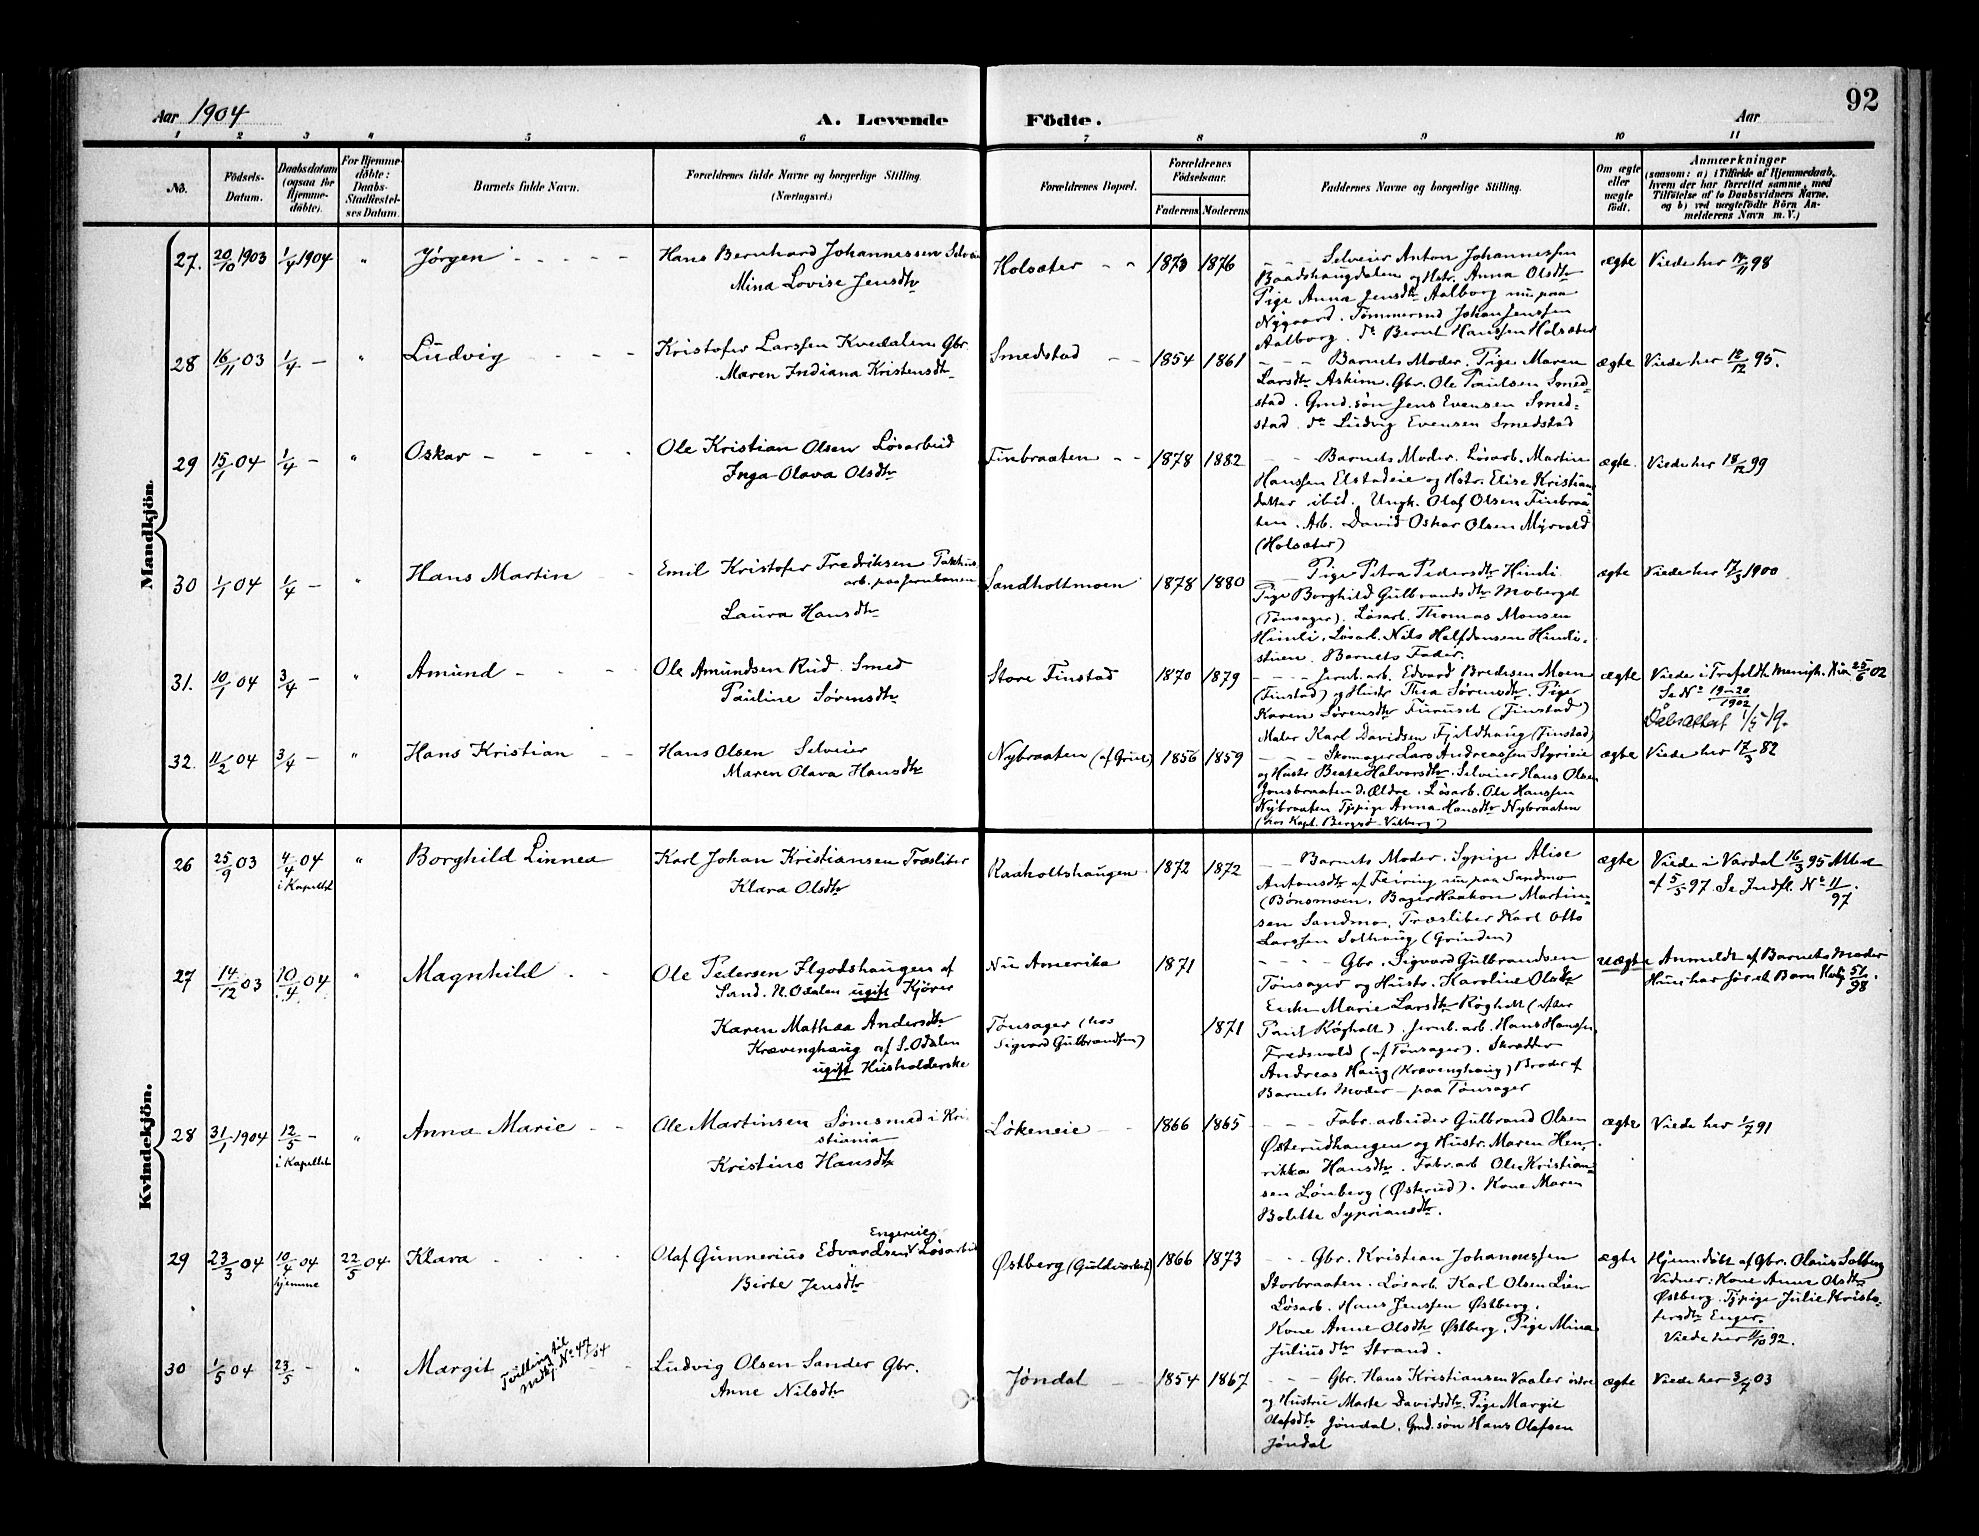 92
Aar 1904
A. Levende Födte.
Aar
1 2 3 " 5 6 7 8 9 10 11
No.
Födsels-Datum.
Daabsdatum (ogsaa for Hjemme-döbte).
For Hjemme-döbte: Daabs-Stadfæstel-ses Datum.
Barnets fulde Navn.
Forældrenes fulde Navne og borgerlige Stilling.
(Næringsvei.)
Forældrenes Bopæl.
Forældrenes Födselsaar.
Faderens Moderens
Faddernes Navne og borgerlige Stilling.
Om ægte eller uægte födt.
Anmærkninger
(saasom: a) i Tilfælde af Hjemmedaab, hvem der har forrettet samme, med Tilföielse af to Daabsvidners Navne, og b) ved uægtefödte Börn An-melderens Navn m. V.)
Mandkjön.
27. 20/10 1903 1/4 1904 " Jørgen
Hans Bernhard Johannessen Selveier
Mina Lovise Jensdtr
Holsæter 1873 1876
Selveier Anton Johannessen
Baadshaugdalen og Hstr. Anna Olsdtr
Pige Anna Jensdtr Aalborg nu paa
Nygaard. Tømmermd Johan Jenssen
Aalborg. do Bernt Hanssen Holsæter
ægte Viede her 18/11 98
28 16/11 03 1/4 – " Ludvig
Kristofer Larssen Kvedalen Gbr.
Maren Indiana Kristensdtr
Smedstad 1854 1861
Barnets Moder. Pige Maren
Larsdtr Askim. Gbr. Ole Paulsen Smed=
stad. Gmd.søn Jens Evensen Smed=
stad. do Ludvig Evensen Smedstad
ægte Viede her 12/12 95.
29 15/1 04 1/4 – " Oskar
Ole Kristian Olsen Løsarbeid
Inga Olava Olsdtr
Finbraaten 1878 1882
Barnets Moder. Løsarb. Martin
Hanssen Elstadeie og Hstr. Elise Kristian=
datter ibid. Ungk. Olaf Olsen Finbraa=
ten. Arb. David Oskar Olsen Myrvold
(Holsæter)
ægte. Viede her 18/12 99
30 1/1 04 1/4 – " Hans Martin
Emil Kristofer Fredriksen Pakhus.
arb. paa Jernbanen
Laura Hansdtr
Sandholtmoen 1878 1880
Pige Petra Pedersdtr Himli
Pige Borghild Gulbrandsdtr Moberget
(Tønsager). Løsarb. Thomas Monsen
Himli. Løsarb. Nils Halfdansen Himli=
stuen. Barnets Fader.
ægte Viede her 17/3 1900
31. 10/1 04 3/4 – " Amund
Ole Amundsen Rud. Smed
Pauline Sørensdtr
Store Finstad 1870 1879
Jernb. arb. Edvard Bredesen Moen
(Finstad) og Hustr. Thea Sørensdtr. Pige
Karen Sørensdtr Furuset (Finstad)
Maler Karl Davidsen Fjeldhaug (Finstad)
ægte Viede i Trefoldt. Menigh. Kria 25/6 02
Se No 19–20/1902
Dåbsattest 1/5-19.
32. 11/2 04 3/4 – " Hans Kristian
Hans Olsen Selveier
Maren Olava Hansdtr
Nybraaten (af Grue) 1856 1859
Skomager Lars Andreassen Styrieie
og Hustr Beate Halvorsdtr. Selveier Hans Olsen
Jonsbraaten d. Ældre. Løsarb. Ole Hanssen
Nybraaten Tjpige Anna Hansdtr Nybraaten
(hos Kapt. Bergsø – Vilberg)
ægte Viede her 17/3 82
Kvindekjön.
26 25/9 03 4/4 04 i Kapellet " Borghild Linnea
Karl Johan Kristiansen Træsliber
Klara Olsdtr
Raaholtshaugen 1872 1872
Barnets Moder. Sypige Alise
Antonsdtr af Feiring nu paa Sandmo
(Bønsmoen. Bager Haakon Martin=
sen Sandmo. Træsliber Karl Otto
Larssen Solhaug (Grinden)
ægte Viede i Vardal 16/3 95 Attest
af 5/5 97 Se Indfl. No 11/97.
27 14/12 03 10/4 04 " Magnhild
Ole Pedersen Flgodshaugen af
Sand. N. Odalen ugift Kjører
Karen Mathea Andersdtr
Krævenghaug af S. Odalen
ugift Husholderske
Nu Amerika 1871
Tønsager (hos
Sigvard Gulbrandsen) 1871
Gbr. Sigvard Gulbrandsen
Tønsager og Hustr. Karoline Olsdtr
Enke Marie Larsdtr Røgholt (efter
Paul Røgholt). Jernb. arb. Hans Hanssen
Fredsvold (af Tønsager). Skrædder
Andreas Haug (Krævenghaug) Broder af
Barnets Moder – paa Tønsager
uægte Anmeldt af Barnets Moder
Hun har før et Barn 51/98.
28 31/1 1904 12/5 – i Kapellet " Anna Marie
Ole Martinsen Sømsmed i Kri
stiania
Kristine Hansdtr
Løkeneie 1866 1865
Fabr. arbeider Gulbrand Olsen
Østerudhaugen og Hustr. Maren Hen=
rikka Hansdtr. Fabr. arb Ole Kristian=
sen Lønberg (Østerud). Kone Maren
Bolette Syprians dtr.
ægte Viede her 1/7 91
29 23/3 04 10/4 04 hjemme 22/5 04 Klara
Engereieg
Olaf Gunnerius Edvardsen V Løsarbeid
Birte Jensdtr
Østberg (Guldverket) 1866 1873
Gbr. Kristian Johannessen
Storbraaten. Løsarb. Karl Olsen Lien
Løsarb. Hans Jenssen Østberg.
Kone Anne Olsdtr Østberg. Pige Mina
Juliusdtr Strand.
ægte Hjemdøbt af Gbr. Olaus Solberg
Vidner: Kone Anne Olsdtr
Østberg. Tjpige Julie Kristo=
fersdtr Enger.
Viede her 11/10 92.
30 1/5 04 23/5 – " Margit
Tvilling til
mdkj. No 47/04
Ludvig Olsen Sander Gbr.
Anne Nilsdtr
Jøndal 1854 1867
Gbr. Hans Kristiansen Vaaler østre
og Hustrue Marte Davidsdtr. Pige Margit
Olafsdtr Jøndal. Gmd.søn Hans Olafsen
Jøndal
ægte Viede her 3/7 03